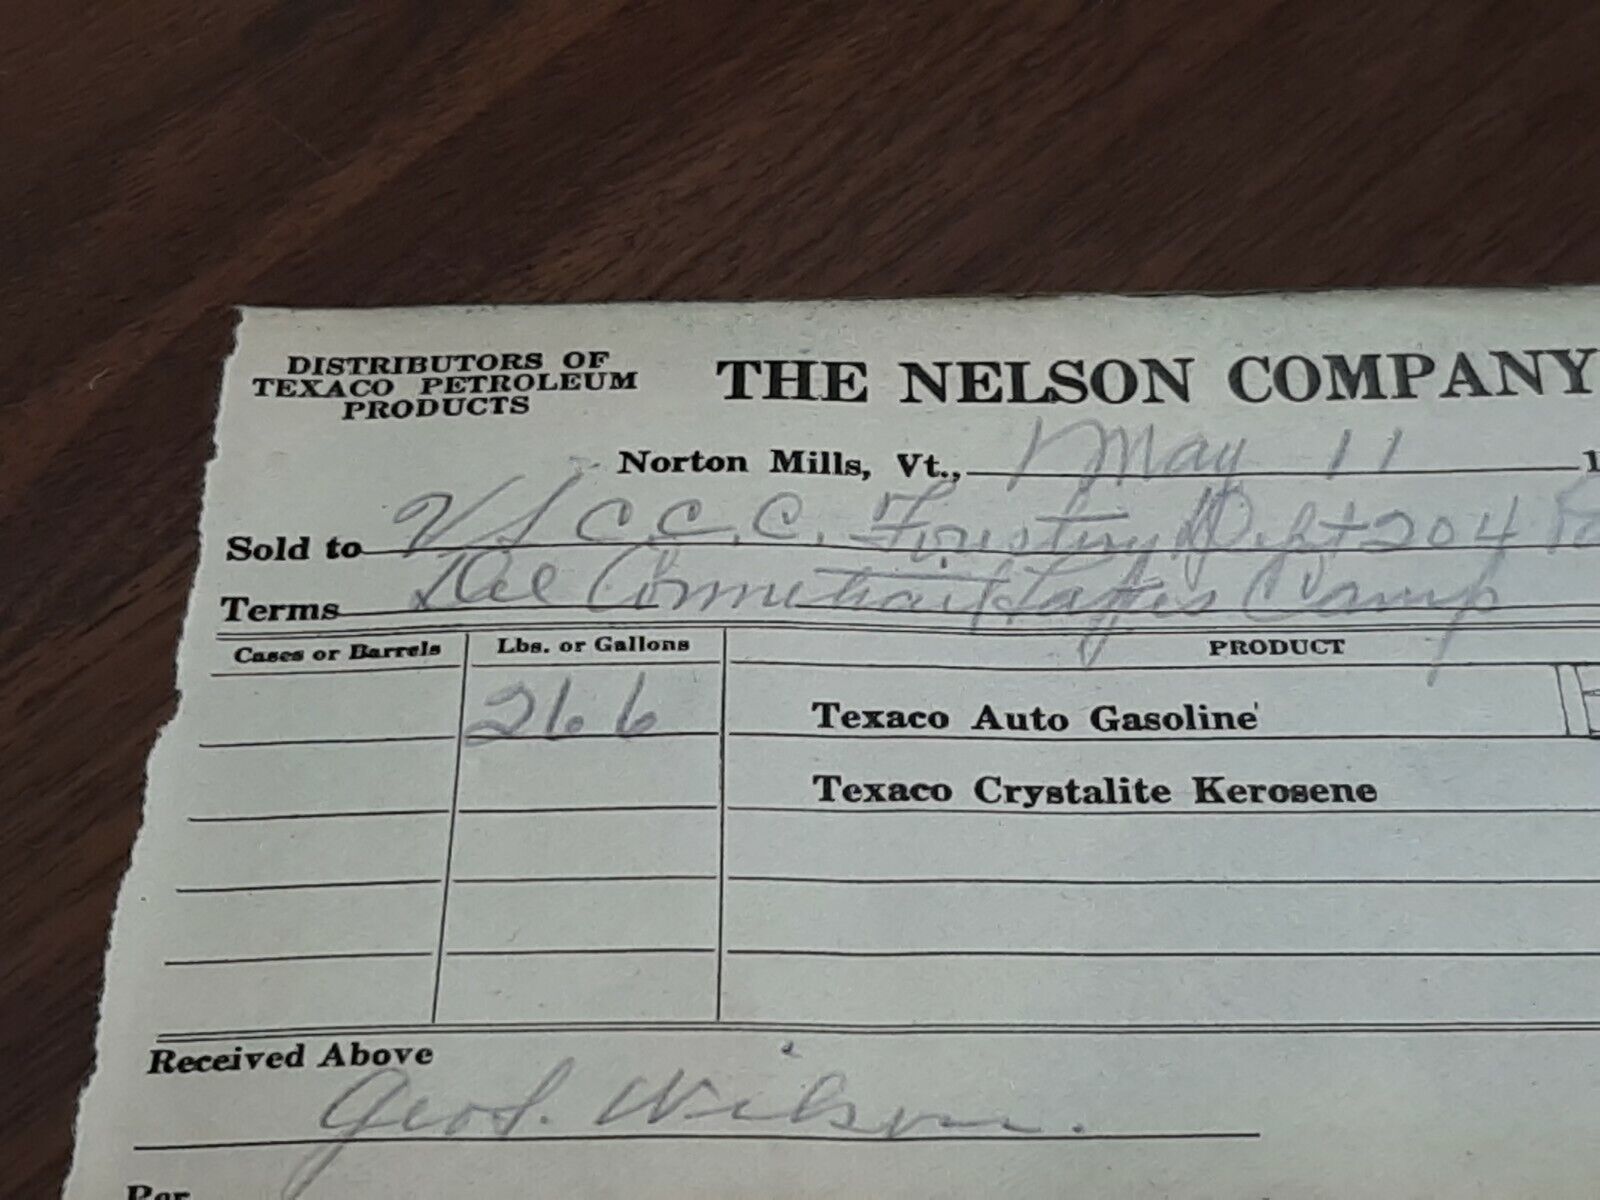 DISTRIBUTORS OF
TEXACO PETROLEUM
PRODUCTS
THE NELSON COMPANY
Norton Mills, Vt., May 11 1
Sold to C.C.C. Forestry Dept 204
Terms Del Camp
Cases or Barrels Lbs. or Gallons PRODUCT
26.6 Texaco Auto Gasoline
Texaco Crystalite Kerosene
Received Above
Geo S. Wilson.
Per